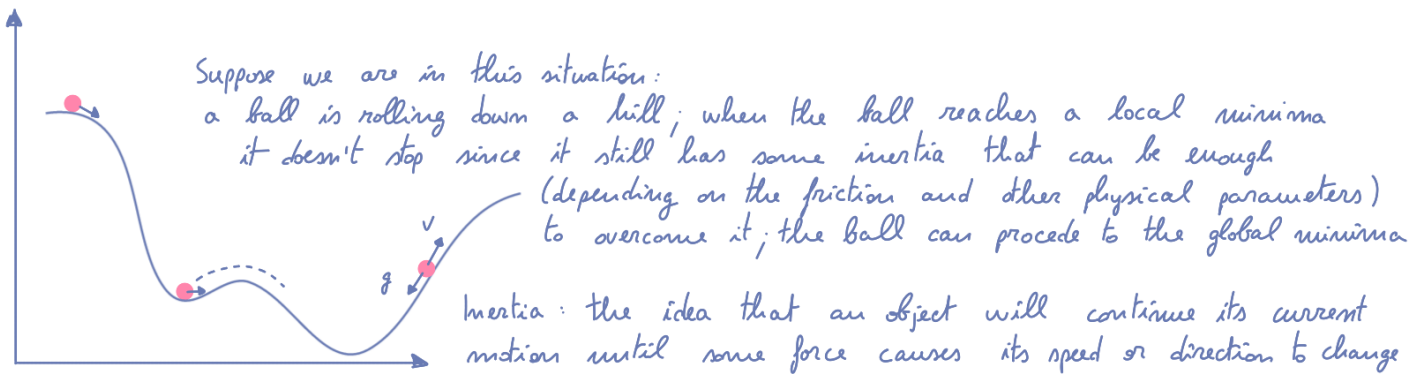 Suppose we are in this situation:
a ball is rolling down a hill; when the ball reaches a local minima
it doesn't stop since it still has some inertia that can be enough
(depending on the friction and other physical parameters)
to overcome it; the ball can procede to the global minima
v
g
Inertia: the idea that an object will continue its current
motion until some force causes its speed or direction to change